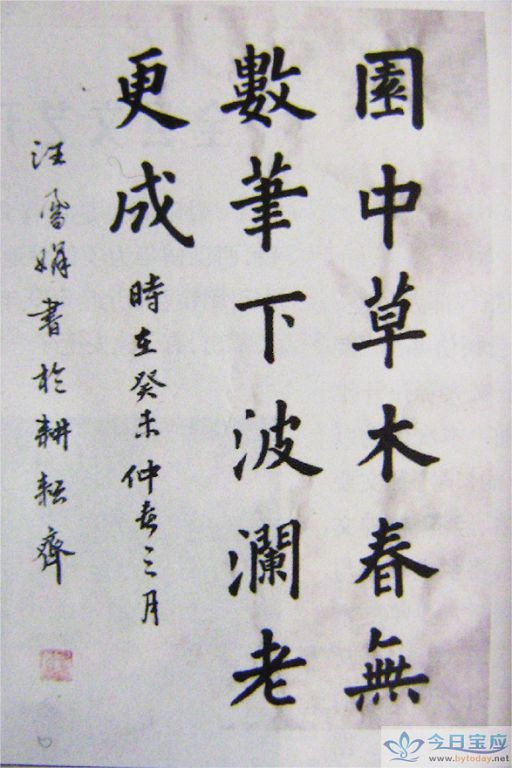 園中草木春無
數筆下波瀾老
更成
時在癸未仲春三月
汪鳳娟書於耕耘齋
今日宝应
www.bytoday.net